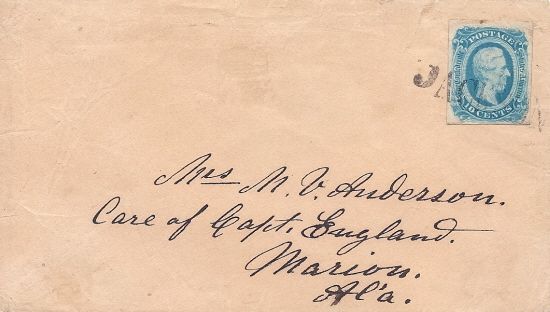 POSTAGE
10 CENTS
Mrs M. V. Anderson.
Care of Capt. England.
Marion.
Al'a.